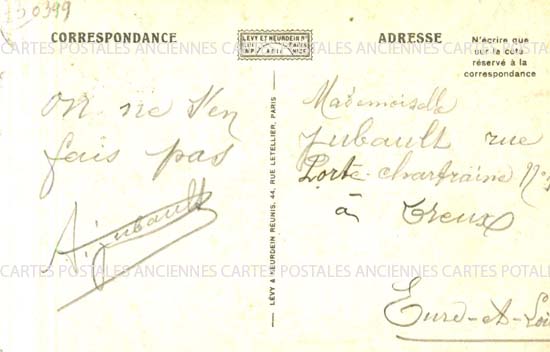 750399
CORRESPONDANCE
LÉVY ET NEURDEIN Rs
ADRESSE
N'écrire que
sur la côté
réservé à la
correspondance
CARTES POSTALES ANCIENNES CARTES POSTALES ANCIENNES CARTES POTALES
On ne s'en
fais pas
A. Jubault
LÉVY & NEURDEIN RÉUNIS, 44, RUE LETELLIER, PARIS
Mademoiselle
Jubault rue
Porte-chartraine N°
à Dreux
Eure-&-Loir
CARTES POSTALES ANCIENNES CARTES POSTALES ANCIENNES CARTES POTALES